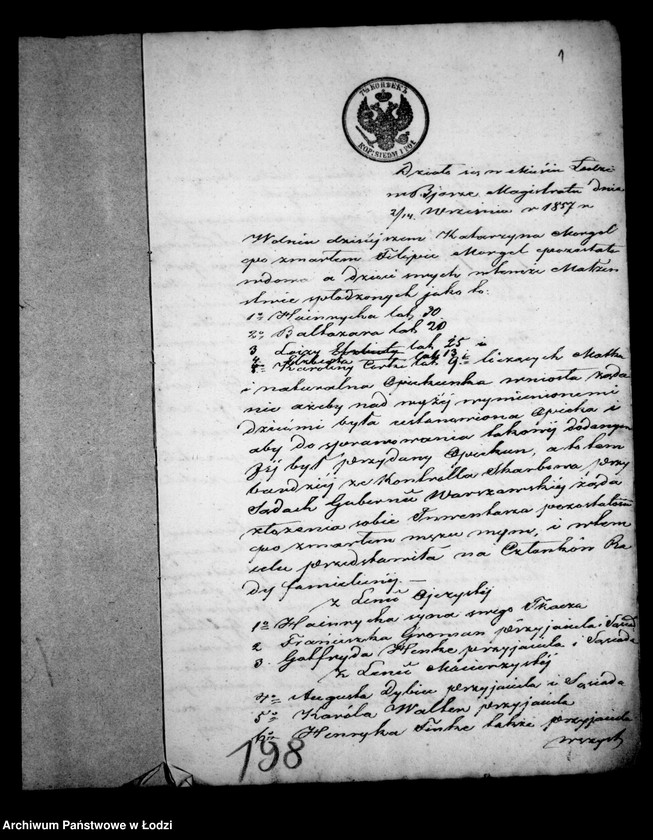 1
7½ КОПѢЕКЪ
KOP: SIEDM I PÓŁ
Działo się w Mieście Łodzi
w Bjórze Magistratu dnia
2/14 Września r 1857 r
W dniu dzisiejszem Katarzyna Mergel
po zmarłem Filipie Mergel pozostała
wdowa a dzieci swych w temże Małżeń
stwie spłodzonych jako to:
1o Heinrycha lat 30
2o Baltazara lat 20
3 Luizy Elzbiety lat 25 i
4. Elzbieta lat 13
5o Karoliny Córke lat 9 liczących Matka
i naturalna Opiekunka wniosła żąda
nie ażeby nad wyżej wymienionemi
dziećmi była ustanowiona Opieka i
aby do sprawowania takowej dodanym
Jej był przydany Opiekun, a to tem
bardziej że Kontrolla Skarbowa przy
Sądach Gubernii Warszawskiej żąda
złożenia sobie Inwentarza pozostałości
po zmarłem mężu mym, i w tem
celu przedstawiła na Członków Ra
dy familijnej. —
Z Linii Ojczystej
1o Heinrycha syna swego Tkacza
2 Franciszka Groman przyjaciela i Sąsiad
3. Golfryda Henke przyjaciela i Sąsiada
Z Linii Macierzystej
4o Augusta Dybiec przyjaciela i Sąsiada
5o Karola Walter przyjaciela
6o Henryka Finke także przyjaciela
wszyst
198
Archiwum Państwowe w Łodzi